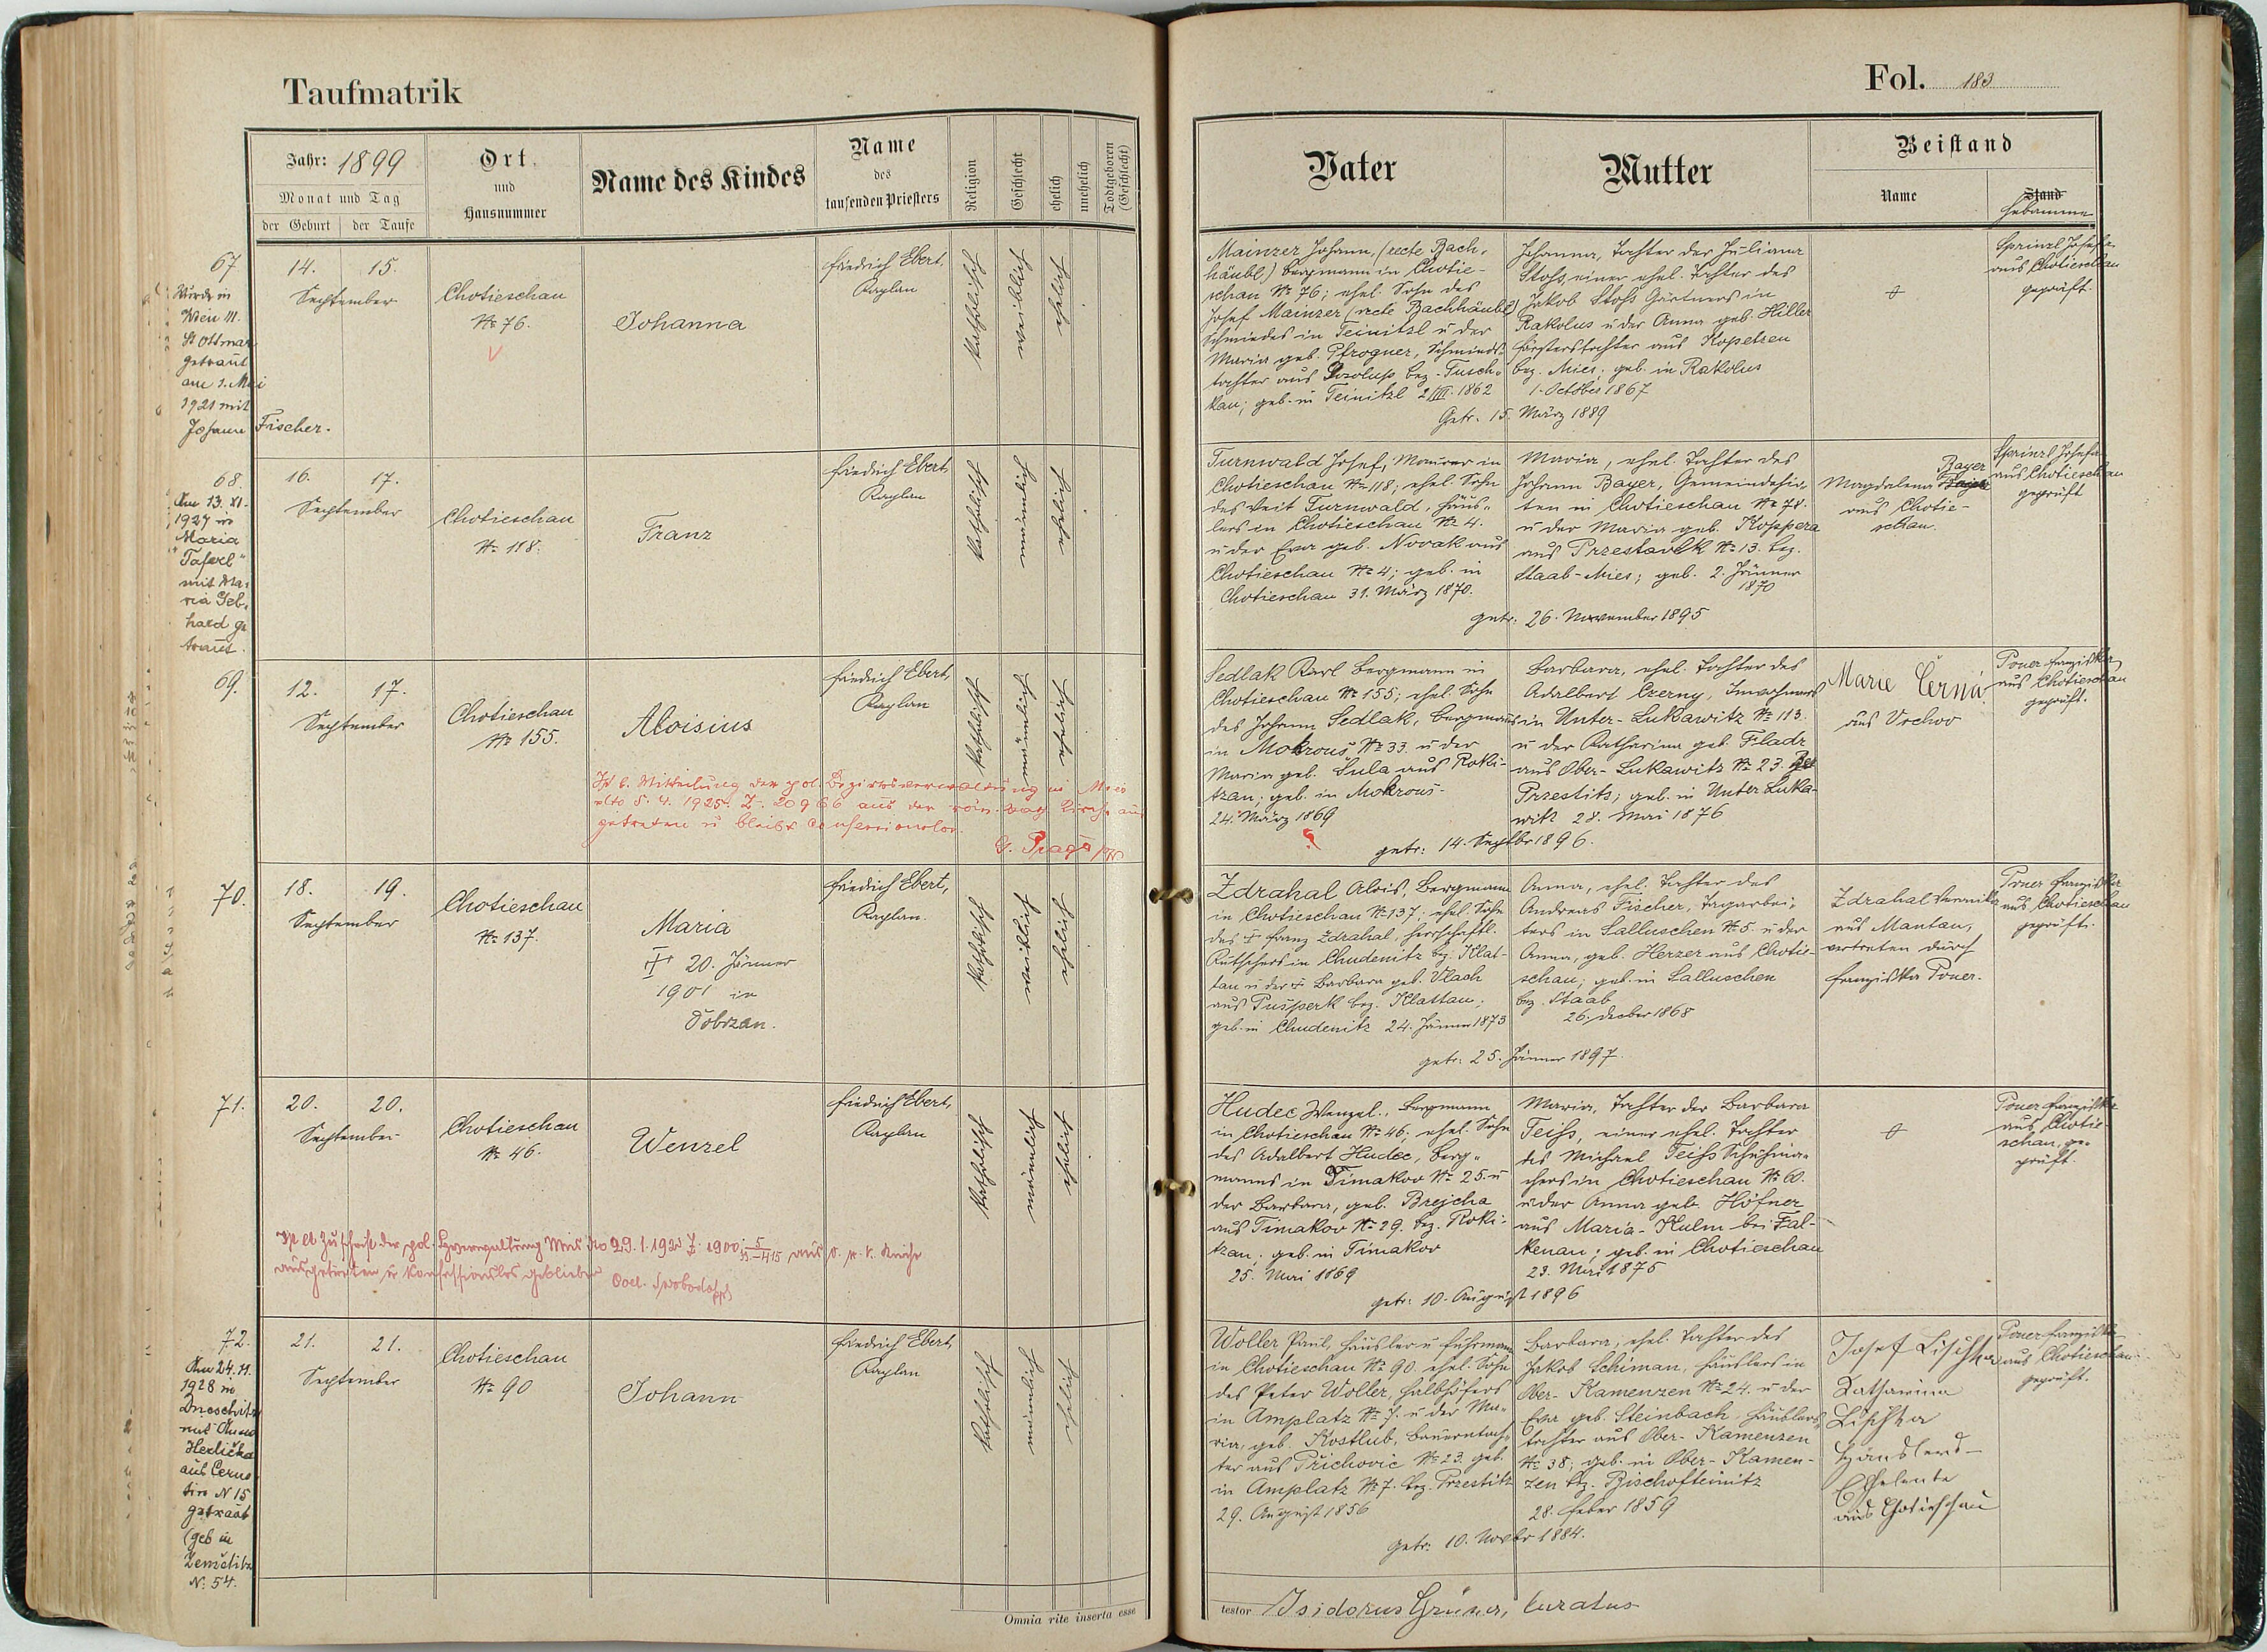 Taufmatrik
Jahr: 1899
Monat und Tag
der Geburt
der Taufe
Ort
und
Hausnummer
Name des Kindes
Name
des
taufenden Priesters
Religion
Geschlecht
ehelich
unehelich
Todtgeboren
(Geschlecht)
67
Wurde in
Wien III.
St Othmar
getraut
am 1. Mai
1921 mit
Johann Fischer.
14. 15.
September
Chotieschau
№ 76.
Johanna
Friedrich Ebert,
Kaplan
katholisch
weiblich
ehelich
68.
Am 13. XI.
1927 in
Maria
"Taferl"
mit Ma-
ria Geb-
hard ge
traut.
16. 17.
September
Chotieschau
№ 118.
Franz
Friedrich Ebert,
Kaplan
katholisch
männlich
ehelich
69.
12. 17.
September
Chotieschau
№ 155.
Aloisius
Friedrich Ebert,
Kaplan
katholisch
männlich
ehelich
Ist l. Mitteilung der pol. Bezirksverwaltung in Mies
dto 5. 4. 1925. Z. 20966 aus der röm. kath Kirche aus
getreten u bleibt confessionslos.
70.
18. 19.
September
Chotieschau
№ 137.
Maria
† 20. Jänner
1901 in
Dobrzan.
Friedrich Ebert,
Kaplan.
katholisch
weiblich
ehelich
71.
20. 20.
September
Chotieschau
№ 46.
Wenzel
Friedrich Ebert,
Kaplan
katholisch
männlich
ehelich
Ist lt Zuschrift der pol. Bzverwaltung Mies aus r. k. Kirche
ausgetreten u konfessionslos geblieben
72.
Am 24. 11.
1928 in
mit Anna
Herlička
aus
N 15
getraut
(geb in
N: 54.
21. 21.
September
Chotieschau
№ 90
Johann
Friedrich Ebert,
Kaplan
katholisch
männlich
ehelich
Omnia rite inserta esse
Fol. 183
Vater
Mutter
Beistand
Name
Stand
Hebamme
Mainzer Johann, (recte Bach-
häubl) Bergmann in Chotie-
schau № 76; ehel. Sohn des
Josef Mainzer (recte Bachhäubl)
Schmiedes in Teinitzl u der
Maria geb. Pfrogner, Schmieds-
tochter aus bez. Tusch-
kau; geb. in Teinitzl 2/III. 1862
Johanna, Tochter der Juliana
Stohs, einer ehel. Tochter des
Jakob Stohs Gärtners in
Rakolus u der Anna geb. Hiller
Försterstochter aus Kopetzen
bez. Mies; geb. in Rakolus
1. October 1867
Getr. 15. März 1889
Sprinzl Josefa
aus Chotieschau
geprüft.
Turnwald Josef, Maurer in
Chotieschau № 118; ehel. Sohn
des Veit Turnwald, Häus-
lers in Chotieschau № 4.
u der Eva geb. Novak aus
Chotieschau № 4; geb. in
Chotieschau 31. März 1870.
Maria, ehel. Tochter des
Johann Bayer, Gemeindehir-
ten in Chotieschau № 78.
u der Maria geb. Koppera
aus Przestavlk № 13. bez.
Staab-Mies; geb. 2 Jänner
1870
getr: 26. November 1895
Magdalena Bayer
aus Chotie-
schau.
Sprinzl Josefa
aus Chotieschau
geprüft
Sedlak Karl Bergmann in
Chotieschau № 155; ehel. Sohn
des Johann Sedlak, Bergmanns
in Mokrouš № 33. u der
Maria geb. Šula aus Roki-
tzan; geb. in Mokrouš
24. März 1869
Barbara, ehel. Tochter des
Adalbert Czerny, Inwohners
in Unter-Lukawitz № 113.
u der Katharina geb. Fladr
aus Ober-Lukawitz № 23. Bez
Przestits; geb. in Unter Luka-
witz 28. Mai 1876
getr: 14. Septbr 1896.
Marie Černá
aus Vrchov
Poner Franziska
aus Chotieschau
geprüft.
Zdrahal Alois, Bergmann
in Chotieschau № 137; ehel. Sohn
des † Franz Zdrahal, herrschaftl.
Kutschers in Chudenitz bez. Klat-
tau u der † Barbara geb. Vlach
aus Pušperk bez. Klattau;
geb. in Chudenitz 24. Jänner 1873
Anna, ehel. Tochter des
Andreas Fischer, Tagarbei-
ters in Salluschen № 5. u der
Anna, geb. Herzer aus Chotie-
schau; geb. in Salluschen
bez. Staab
26. Decber 1868
getr: 25. Jänner 1897.
Zdrahal Veronika
aus Mantau,
vertreten durch
Franziska Poner.
Poner Franziska
aus Chotieschau
geprüft.
Hudec Wenzel, Bergmann
in Chotieschau № 46; ehel. Sohn
des Adalbert Hudec, Berg-
manns in Timakov № 25. u
der Barbara, geb. Brejcha
aus Timakov № 29. bez. Roki-
tzan; geb. in Timakov
25. Mai 1869
Maria, Tochter der Barbara
Teihs, einer ehel. Tochter
des Michael Teihs Schuhma-
chers in Chotieschau № 60.
u der Anna geb. Höfner
aus Maria-Kulm bei Fal-
kenau; geb. in Chotieschau
23. März 1875
getr: 10. August 1896
Poner Franziska
aus Chotie-
schau, ge-
prüft.
Woller Paul, Häusler u Fuhrmann
in Chotieschau № 90. ehel. Sohn
des Peter Woller, Halbhöfers
in Amplatz № 7. u der Ma-
ria, geb. Kostlub, Bauerntoch-
ter aus Přichovic № 23. geb.
in Amplatz № 7. bez. Przestitz
29. August 1856
Barbara, ehel. Tochter des
Jakob Schiman, Häuslers in
Ober-Kamenzen № 24. u der
Eva geb. Steinbach, Häuslers-
tochter aus Ober-Kamenzen
№ 38; geb. in Ober-Kamen-
zen bz. Bischofteinitz
28. Feber 1859
getr: 10. Novbr 1884.
Josef Lischka
Katharina
Lischka
Häuslers-
Eheleute
aus Chotieschau
Poner Franziska
aus Chotieschau
geprüft.
testor Isidorus Grüner, Curatus